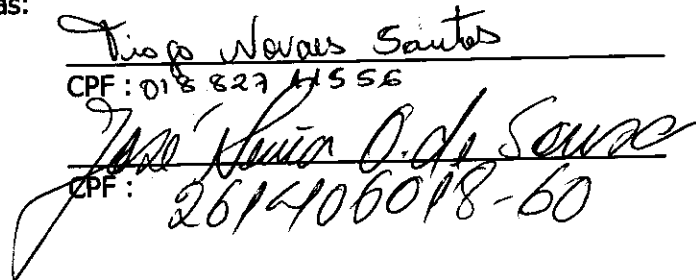 as:
Tiago Novais Santos
CPF : 018 827 415 56
José O. de Souza
CPF :
261406018-60